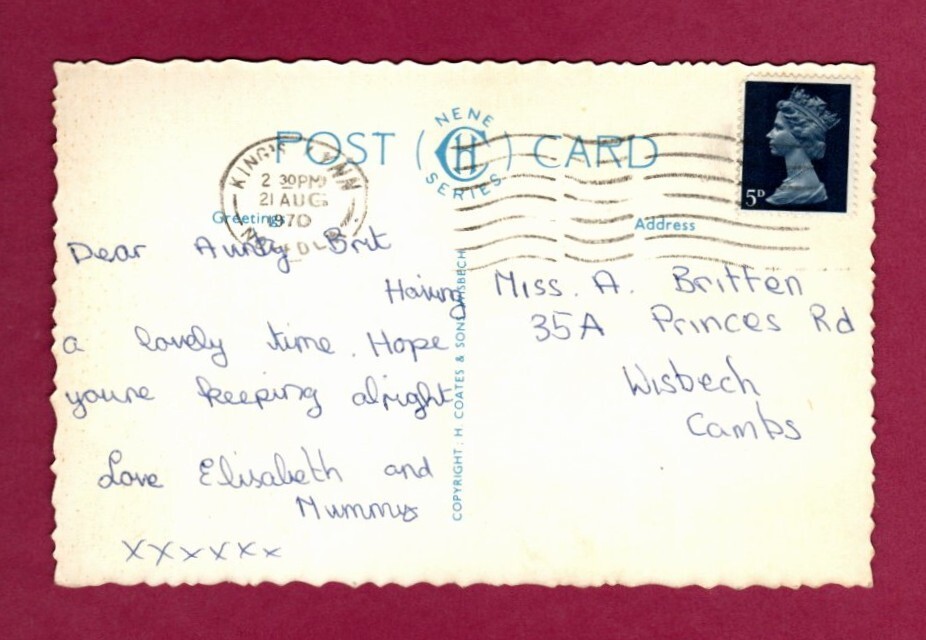 POST ( NENE CH SERIES ) CARD
KING'S LYNN
2 30PM
21 AUG
1970
NORFOLK
5D
Greetings
Address
Dear Aunty Brit
Having
a lovely time. Hope
you're keeping alright
Love Elisabeth and
Mummy
xxxxxx
COPYRIGHT: H COATES & SON, WISBECH
Miss. A. Britten
35A Princes Rd
Wisbech
Cambs